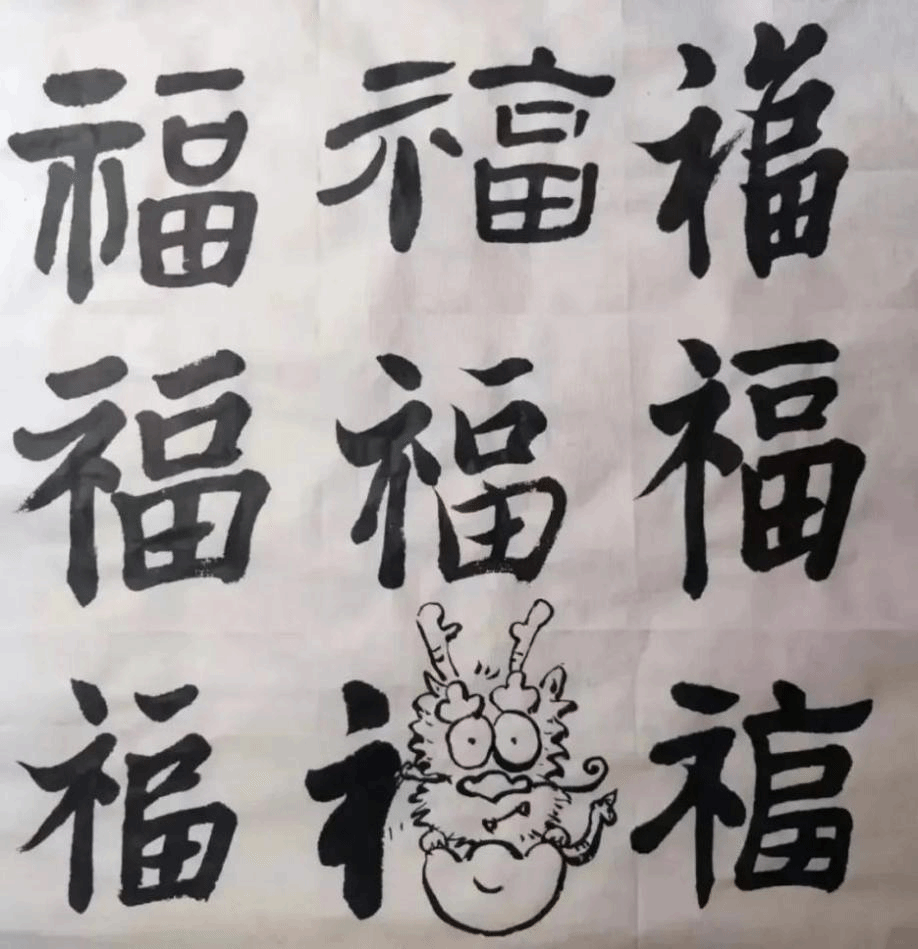 福 福 福
福 福 福
福 福